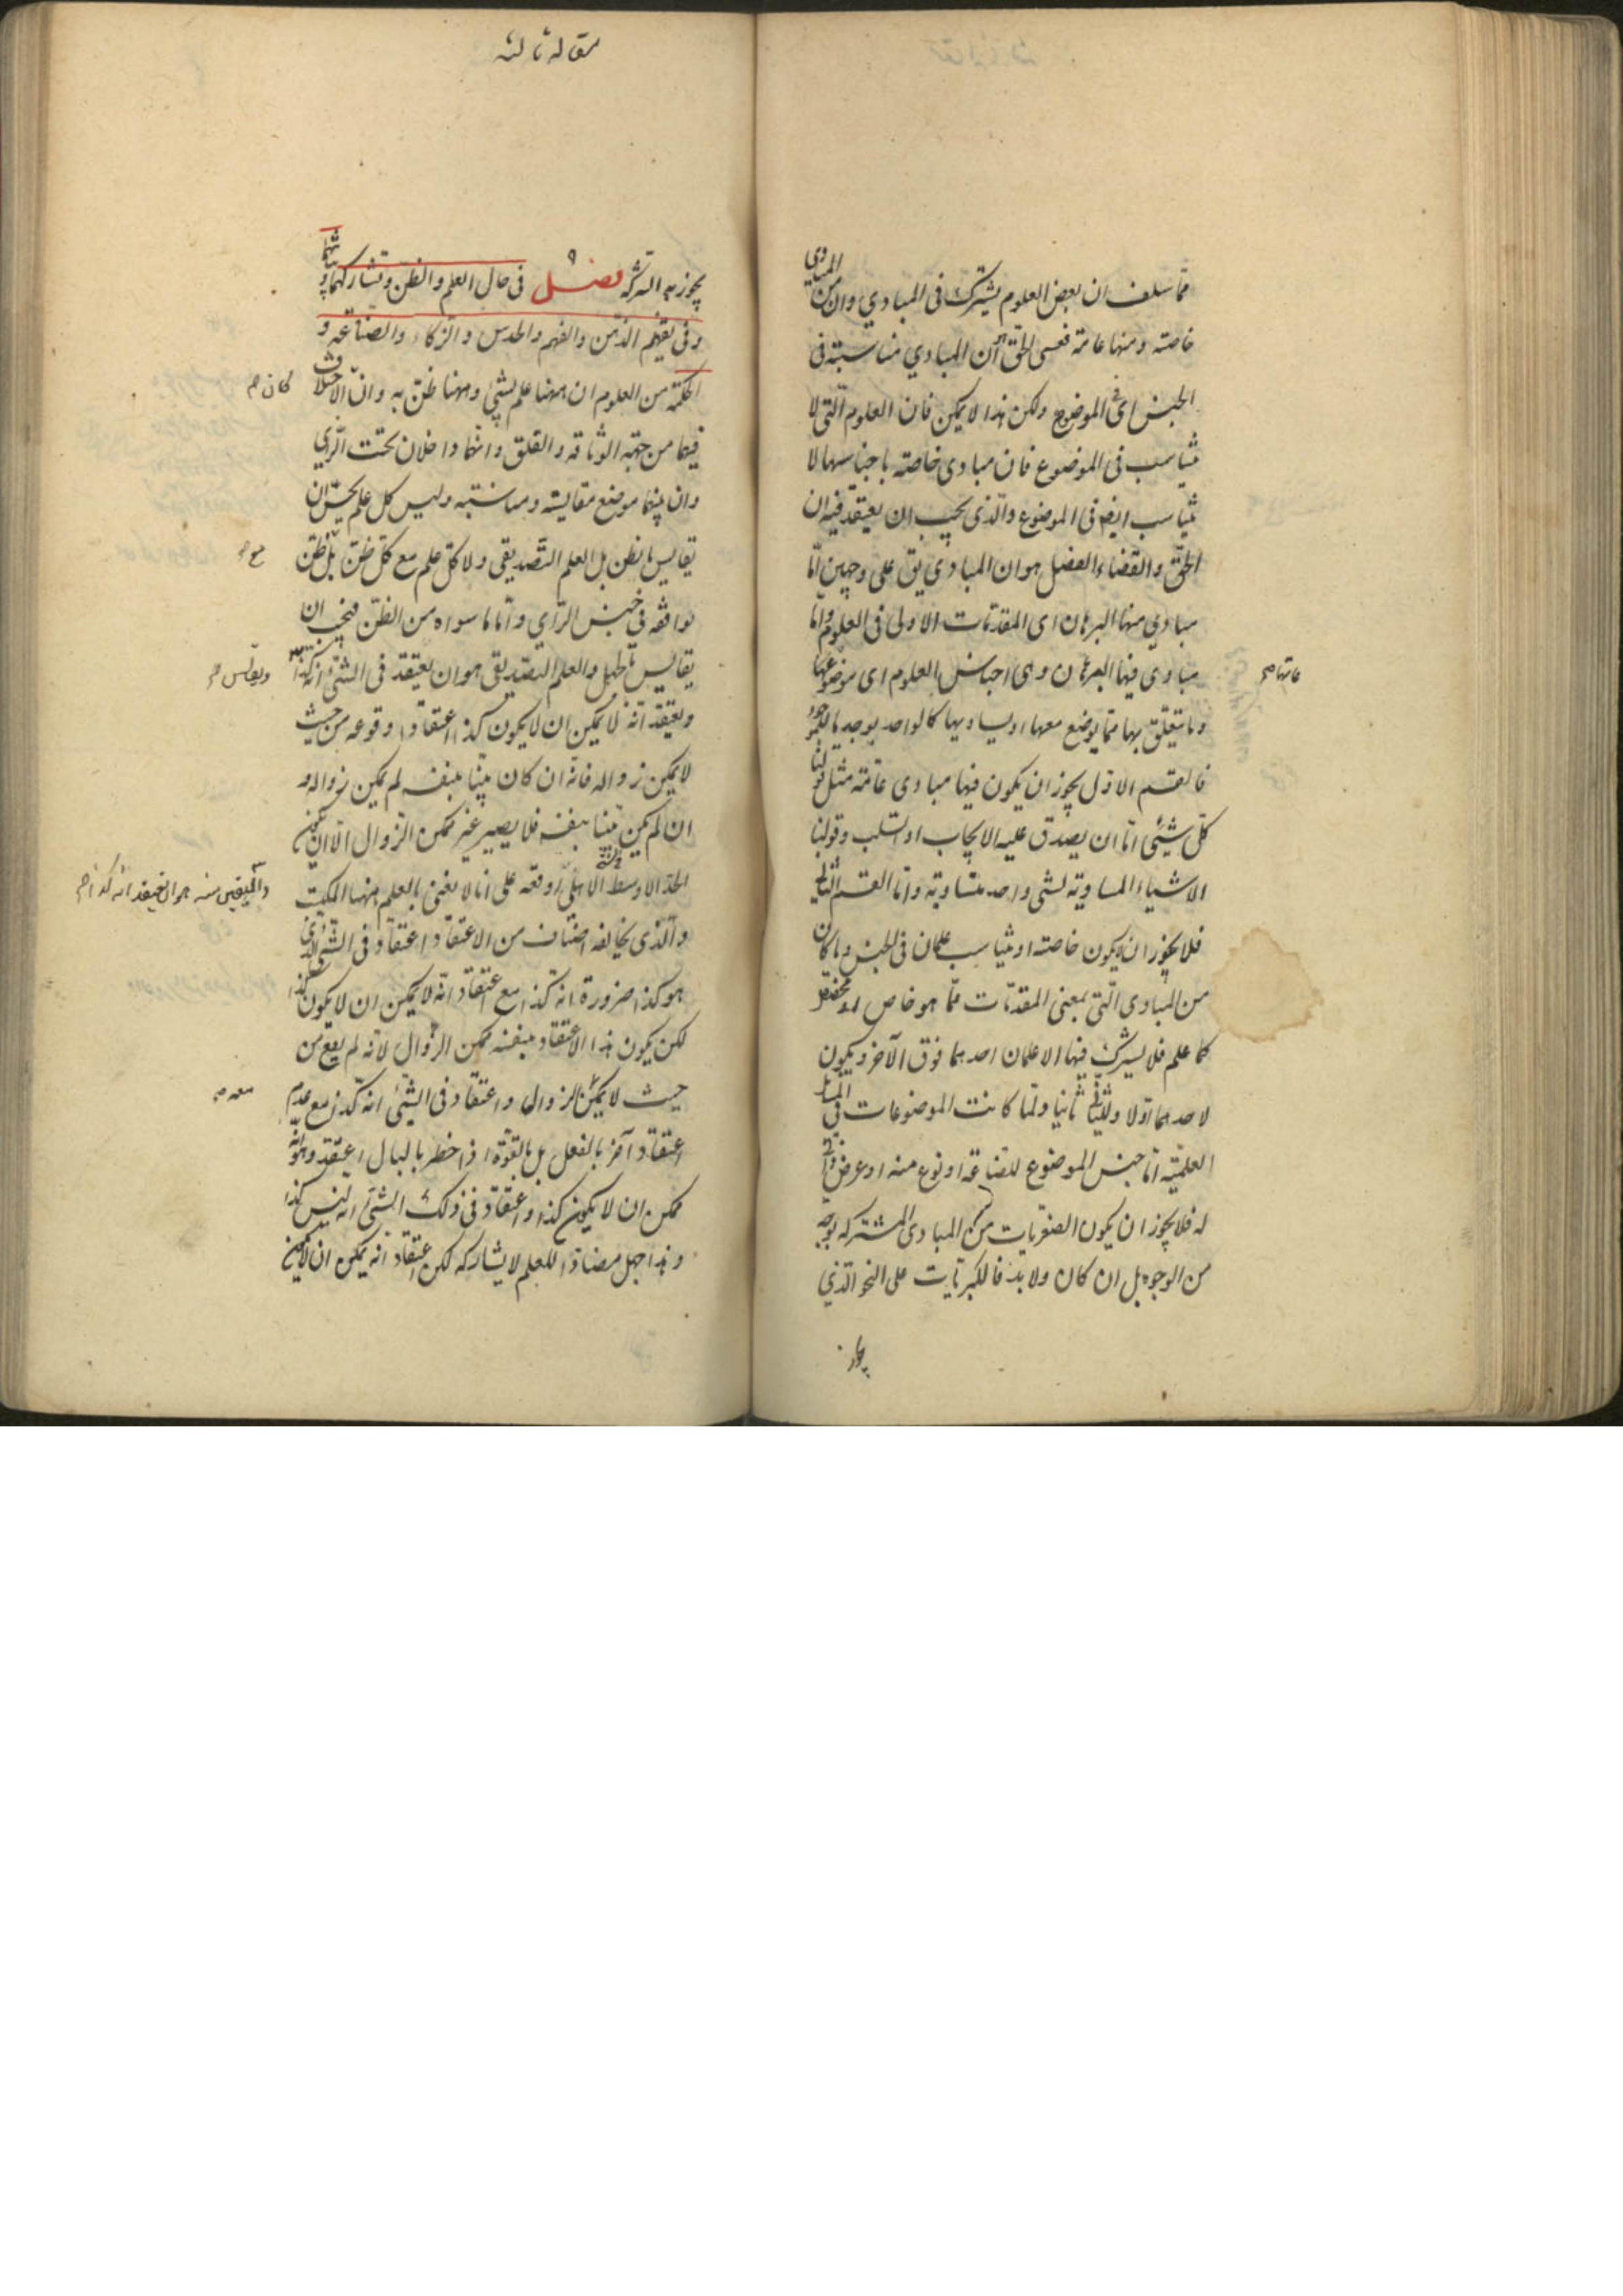 مما سلف ان بعض العلوم يشترك فى المبادي وان من المبادي
خاصة ومنها عامة فعسى الحق هو ان المبادي مناسبة فى
الجنس اى فى الموضوع ولكن هذا لا يمكن فان العلوم التى لا
يناسب فى الموضوع فان مبادى خاصة باجناسها لا
يناسب ايض فى الموضوع والذى يجب ان يعتقد فيه ان
الحق والقضاء الفصل هو ان المبادي يق على وجهين اما
مبادي منها البرهان اى المقدمات الاولى فى العلوم واما
مبادى فيها البرهان وهى اجناس العلوم اى موضوعاتها
وما يتعلق بها مما يوضع معها او يساويها كالواحد يوجد بالموجود
فالقسم الاول يجوز ان يكون فيها مبادى عامة مثل قولنا
كل شيئى اما ان يصدق عليه الايجاب او السلب وقولنا
الاشياء المساوية لشى واحد متساوية واما القسم الثانى
فلا يجوز ان يكون خاصة او يناسب علمان فى الجنس وما كان
من المبادى التى بمعنى المقدمات مما هو خاص
كما علم فلا يشترك فيها الا علمان احدهما فوق الآخر ويكون
لاحدهما اولا وللثانى ثانيا ولما كانت الموضوعات فى المسائل
العلمية اما جنس الموضوع للصناعة او نوع منه او عرض ذاتى
له فلا يجوز ان يكون الصغريات من المبادى المشتركه بوجه
من الوجوه بل ان كان ولا بد فالكبريات على النحو الذي
يجوز
مقاله ثالثه
يجوز به الشركة فصل ٩ فى حال العلم والظن وتشاركهما وتباينهما
وفى تفهيم الذهن والفهم والحدس والذكاء والصناعه و
الحكمة من العلوم ان ههنا علم بشئ وههنا ظن به وان الاختلاف
كان م
فيهما من جهة الوثاقه والقلق وانهما داخلان تحت الراى
وان بينهما موضع مقايسة ومناسبة وليس كل علم يحسن ان
يقايس بالظن بل العلم التصديقى ولا كل علم مع كل ظن بل ظن
يوافقه فى جنس الرأي واما ما سواه من الظن فيجب ان
يقايس بالجهل والعلم التصديقى هو ان يعتقد فى الشئ انه كذا
ويعتقد انه لا يمكن ان لا يكون كذا اعتقادا وقوعه من حيث
لا يمكن زواله فانه ان كان بينا بنفسه لم يمكن زواله و
ان لم يكن بينا بنفسه فلا يصير غير ممكن الزوال الا ان يكون
الحد الاوسط الاعلى اوقعه على انا لا نعنى بالعلم ههنا المكتسب
واليقين منه هو ان يعتقد انه كذا م
والذى يخالفه اصناف من الاعتقاد اعتقاد فى الشئ الذى
هو كذا ضرورة انه كذا مع اعتقاد انه لا يمكن ان لا يكون كذا
لكن يكون هذا الاعتقاد بنفسه ممكن الزوال لانه لم يقع من
حيث لا يمكن الزوال واعتقاد فى الشئ انه كذا مع عدم
اعتقاد آخر بالفعل بل بالقوة اذا خطر بالبال اعتقد وهو انه
ممكن ان لا يكون كذا واعتقاد فى ذلك الشئ انه ليس كذا
وهذا جهل مضاد للعلم لا يشاركه لكن اعتقاد انه يمكن ان لا يكون